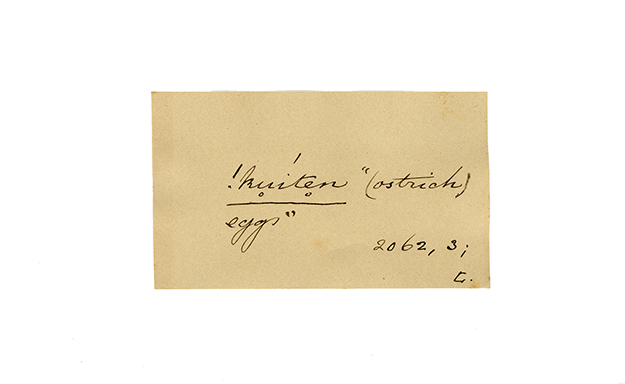 !kúi̥te̥n "(ostrich)
eggs"
2062, 3;
L.